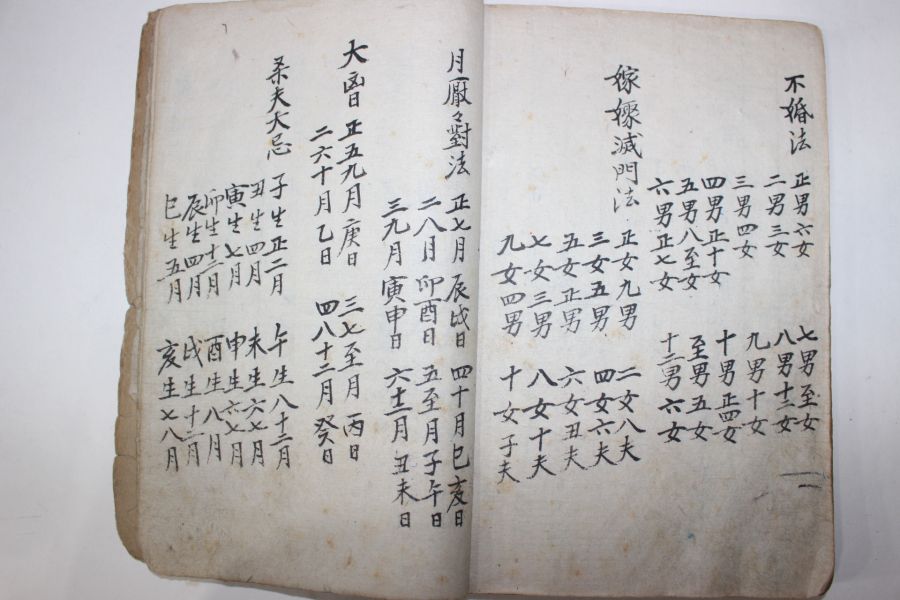 不婚法
正男六女 七男至女
二男三女 八男十二女
三男四女 九男十女
四男正十女 十男正四女
五男八至女 至男五女
六男正七女 十二男六女
嫁嫁滅門法
正女九男 二女八夫
三女五男 四女六夫
五女正男 六女丑夫
七女三男 八女十夫
九女四男 十女子夫
月厭々對法
正七月辰戌日 四十月巳亥日
二八月卯酉日 五至月子午日
三九月寅申日 六十二月丑未日
大凶日
正五九月庚日 三七至月丙日
二六十月乙日 四八十二月癸日
夫大忌
子生正二月 午生八十二月
丑生四月 未生六七月
寅生七月 申生六七月
卯生十二月 酉生八月
辰生四月 戌生十二月
巳生五月 亥生七八月